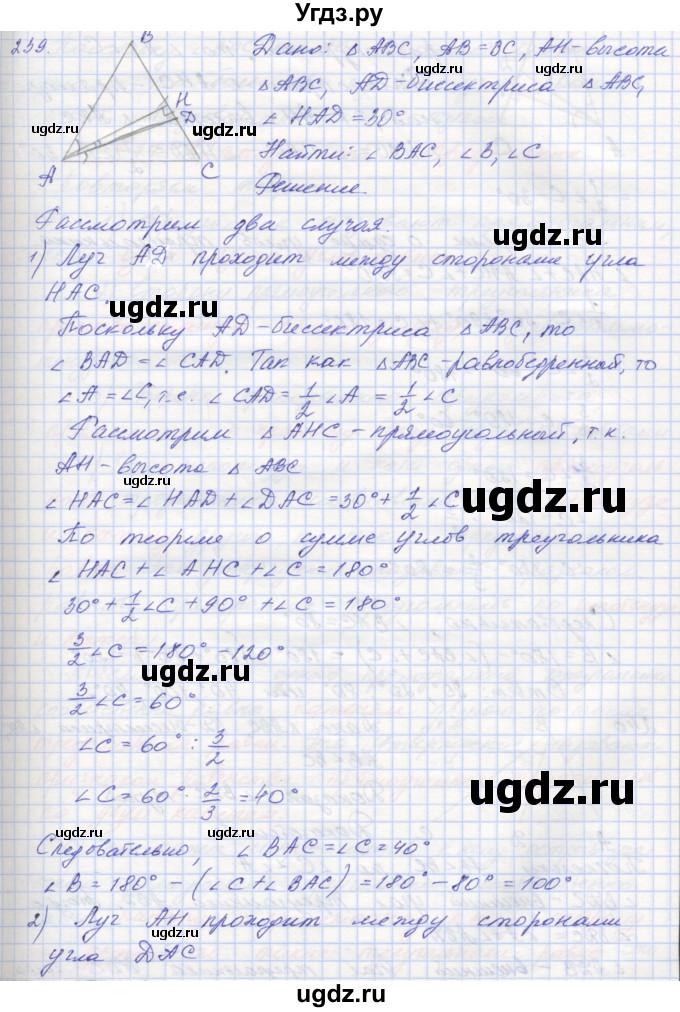 Угдз.ру
239.
B
H
D
A
C
Дано: △ABC, AB=BC, AH-высота
△ABC, AD-биссектриса △ABC,
∠HAD=30°
Найти: ∠BAC, ∠B, ∠C
Решение.
Рассмотрим два случая.
1) Луч AD проходит между сторонами угла
HAC.
Поскольку AD-биссектриса △ABC, то
∠BAD=∠CAD. Так как △ABC-равнобедренный, то
∠A=∠C, т.е. ∠CAD=1/2∠A=1/2∠C
Рассмотрим △AHC-прямоугольный, т.к.
AH-высота △ABC
∠HAC=∠HAD+∠DAC=30°+1/2∠C
По теореме о сумме углов треугольника
∠HAC+∠AHC+∠C=180°
30°+1/2∠C+90°+∠C=180°
3/2∠C=180°-120°
3/2∠C=60°
∠C=60°:3/2
∠C=60°·2/3=40°
Следовательно, ∠BAC=∠C=40°
∠B=180°-(∠C+∠BAC)=180°-80°=100°
2) Луч AH проходит между сторонами
угла DAC
uгдз.ru
uгдз.ru
uгдз.ru
uгдз.ru
uгдз.ru
uгдз.ru
uгдз.ru
uгдз.ru
uгдз.ru
uгдз.ru
uгдз.ru
uгдз.ru
uгдз.ru